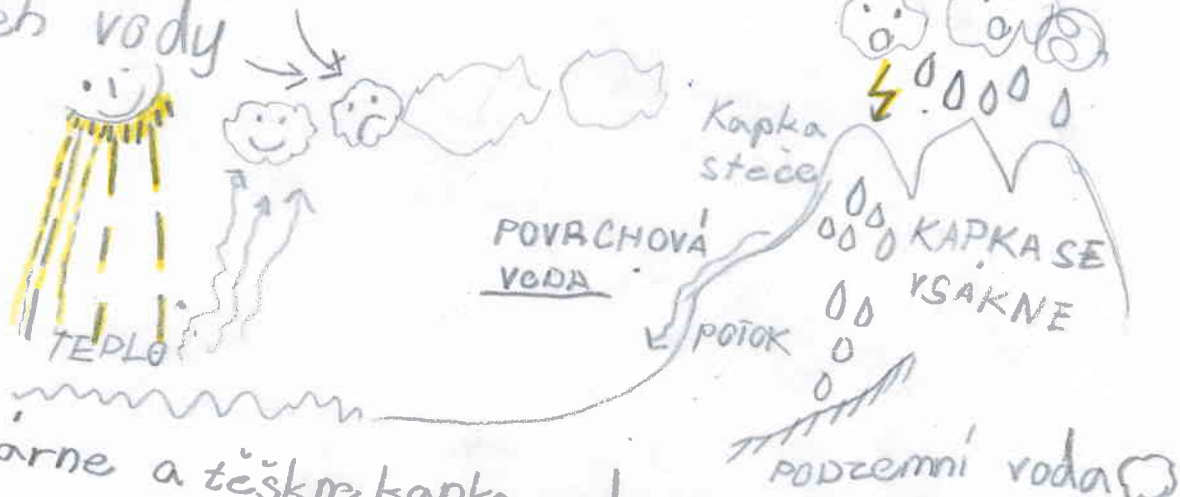 eh vody
Kapka
steče
POVRCHOVÁ
VODA
KAPKA SE
VSÁKNE
POTOK
TEPLO
podzemní voda
árne a těškne kapka